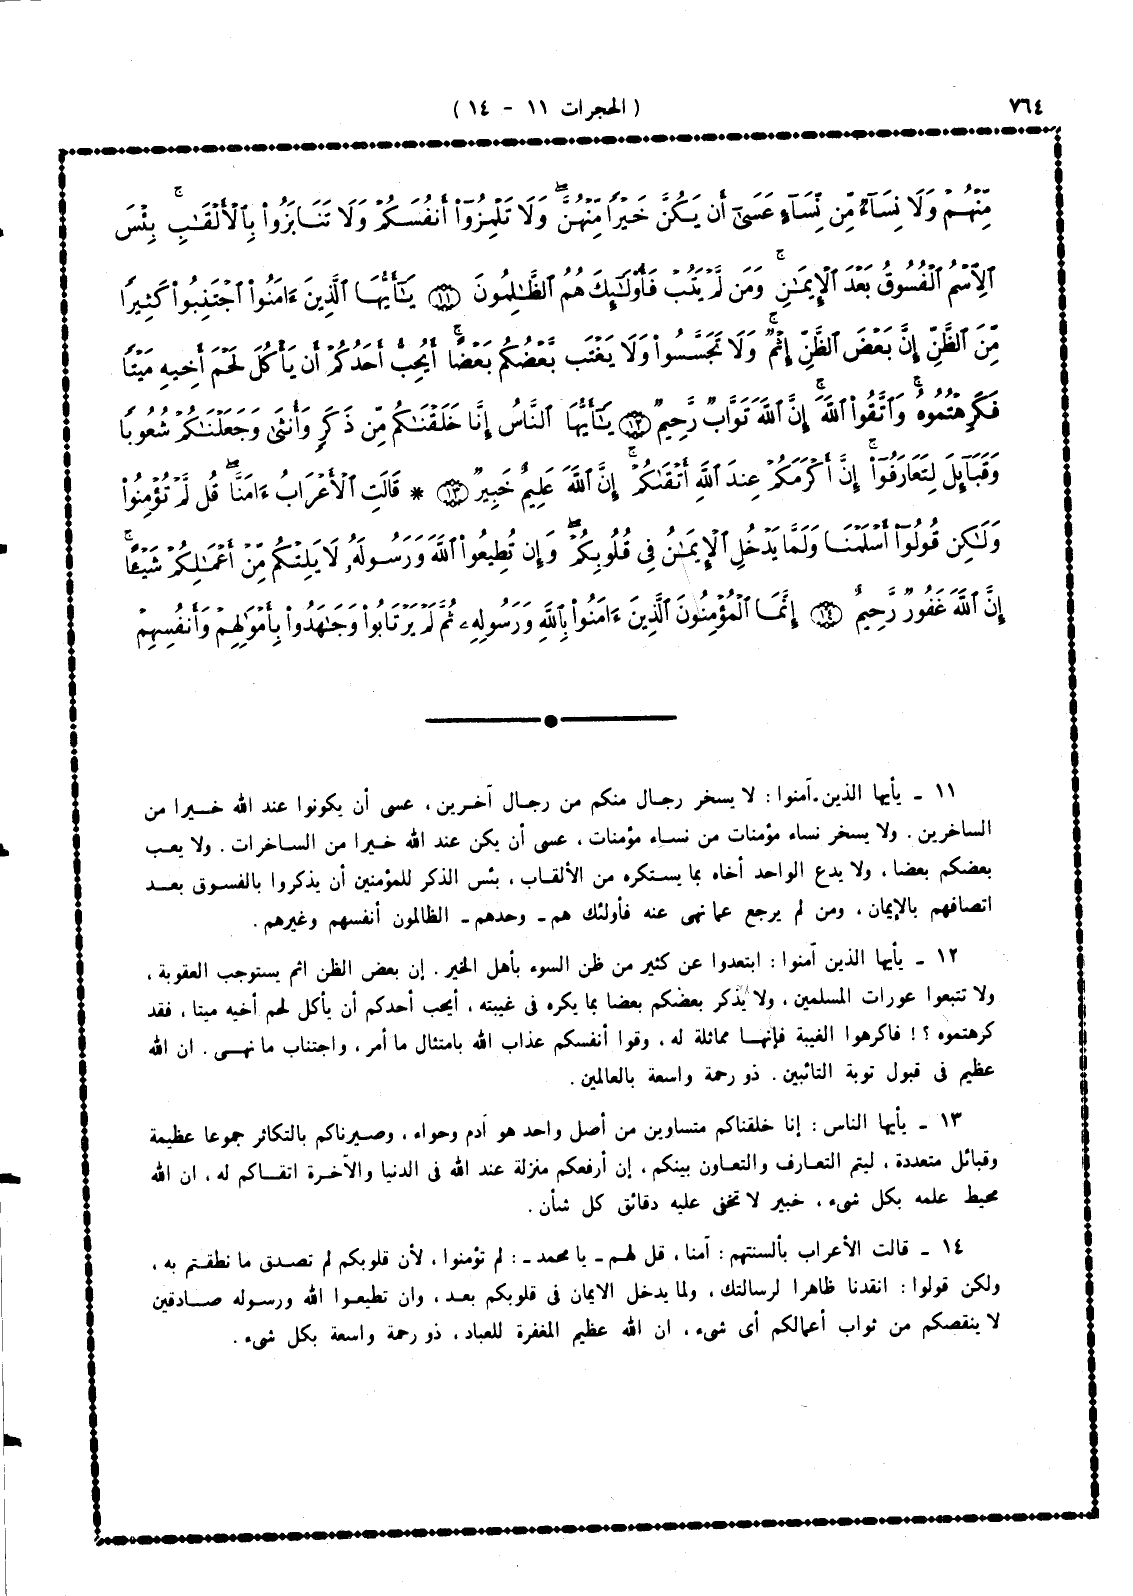 ٧٦٤
( الحجرات ١١ - ١٤ )
مِّنْهُمْ وَلَا نِسَآءٌ مِّن نِّسَآءٍ عَسَىٰٓ أَن يَكُنَّ خَيْرًا مِّنْهُنَّ ۖ وَلَا تَلْمِزُوٓا۟ أَنفُسَكُمْ وَلَا تَنَابَزُوا۟ بِٱلْأَلْقَٰبِ ۚ بِئْسَ
ٱلِٱسْمُ ٱلْفُسُوقُ بَعْدَ ٱلْإِيمَٰنِ ۚ وَمَن لَّمْ يَتُبْ فَأُو۟لَٰٓئِكَ هُمُ ٱلظَّٰلِمُونَ ﴿١١﴾ يَٰٓأَيُّهَا ٱلَّذِينَ ءَامَنُوا۟ ٱجْتَنِبُوا۟ كَثِيرًا
مِّنَ ٱلظَّنِّ إِنَّ بَعْضَ ٱلظَّنِّ إِثْمٌ ۖ وَلَا تَجَسَّسُوا۟ وَلَا يَغْتَب بَّعْضُكُم بَعْضًا ۚ أَيُحِبُّ أَحَدُكُمْ أَن يَأْكُلَ لَحْمَ أَخِيهِ مَيْتًا
فَكَرِهْتُمُوهُ ۚ وَٱتَّقُوا۟ ٱللَّهَ ۚ إِنَّ ٱللَّهَ تَوَّابٌ رَّحِيمٌ ﴿١٢﴾ يَٰٓأَيُّهَا ٱلنَّاسُ إِنَّا خَلَقْنَٰكُم مِّن ذَكَرٍ وَأُنثَىٰ وَجَعَلْنَٰكُمْ شُعُوبًا
وَقَبَآئِلَ لِتَعَارَفُوٓا۟ ۚ إِنَّ أَكْرَمَكُمْ عِندَ ٱللَّهِ أَتْقَىٰكُمْ ۚ إِنَّ ٱللَّهَ عَلِيمٌ خَبِيرٌ ﴿١٣﴾ * قَالَتِ ٱلْأَعْرَابُ ءَامَنَّا ۖ قُل لَّمْ تُؤْمِنُوا۟
وَلَٰكِن قُولُوٓا۟ أَسْلَمْنَا وَلَمَّا يَدْخُلِ ٱلْإِيمَٰنُ فِى قُلُوبِكُمْ ۖ وَإِن تُطِيعُوا۟ ٱللَّهَ وَرَسُولَهُۥ لَا يَلِتْكُم مِّنْ أَعْمَٰلِكُمْ شَيْـًٔا ۚ
إِنَّ ٱللَّهَ غَفُورٌ رَّحِيمٌ ﴿١٤﴾ إِنَّمَا ٱلْمُؤْمِنُونَ ٱلَّذِينَ ءَامَنُوا۟ بِٱللَّهِ وَرَسُولِهِۦ ثُمَّ لَمْ يَرْتَابُوا۟ وَجَٰهَدُوا۟ بِأَمْوَٰلِهِمْ وَأَنفُسِهِمْ
١١ - يأيها الذين آمنوا : لا يسخر رجال منكم من رجال آخرين ، عسى أن يكونوا عند الله خيرا من
الساخرين . ولا يسخر نساء مؤمنات من نساء مؤمنات ، عسى أن يكن عند الله خيرا من الساخرات . ولا يعب
بعضكم بعضا ، ولا يدع الواحد أخاه بما يستكره من الألقاب ، بئس الذكر للمؤمنين أن يذكروا بالفسوق بعد
اتصافهم بالإيمان ، ومن لم يرجع عما نهى عنه فأولئك هم - وحدهم - الظالمون أنفسهم وغيرهم .
١٢ - يأيها الذين آمنوا : ابتعدوا عن كثير من ظن السوء بأهل الخير . إن بعض الظن اثم يستوجب العقوبة ،
ولا تتبعوا عورات المسلمين ، ولا يذكر بعضكم بعضا بما يكره فى غيبته ، أيحب أحدكم أن يأكل لحم أخيه ميتا ، فقد
كرهتموه ؟ ! فاكرهوا الغيبة فإنها مماثلة له ، وقوا أنفسكم عذاب الله بامتثال ما أمر ، واجتناب ما نهى . ان الله
عظيم فى قبول توبة التائبين . ذو رحمة واسعة بالعالمين .
١٣ - يأيها الناس : إنا خلقناكم متساوين من أصل واحد هو آدم وحواء ، وصيرناكم بالتكاثر جموعا عظيمة
وقبائل متعددة ، ليتم التعارف والتعاون بينكم ، إن أرفعكم منزلة عند الله فى الدنيا والآخرة اتقاكم له ، ان الله
محيط علمه بكل شىء ، خبير لا تخفى عليه دقائق كل شأن .
١٤ - قالت الأعراب بألسنتهم : آمنا ، قل لهم - يا محمد - : لم تؤمنوا ، لأن قلوبكم لم تصدق ما نطقتم به ،
ولكن قولوا : انقدنا ظاهرا لرسالتك ، ولما يدخل الايمان فى قلوبكم بعد ، وان تطيعوا الله ورسوله صادقين
لا ينقصكم من ثواب أعمالكم أى شىء ، ان الله عظيم المغفرة للعباد ، ذو رحمة واسعة بكل شىء .